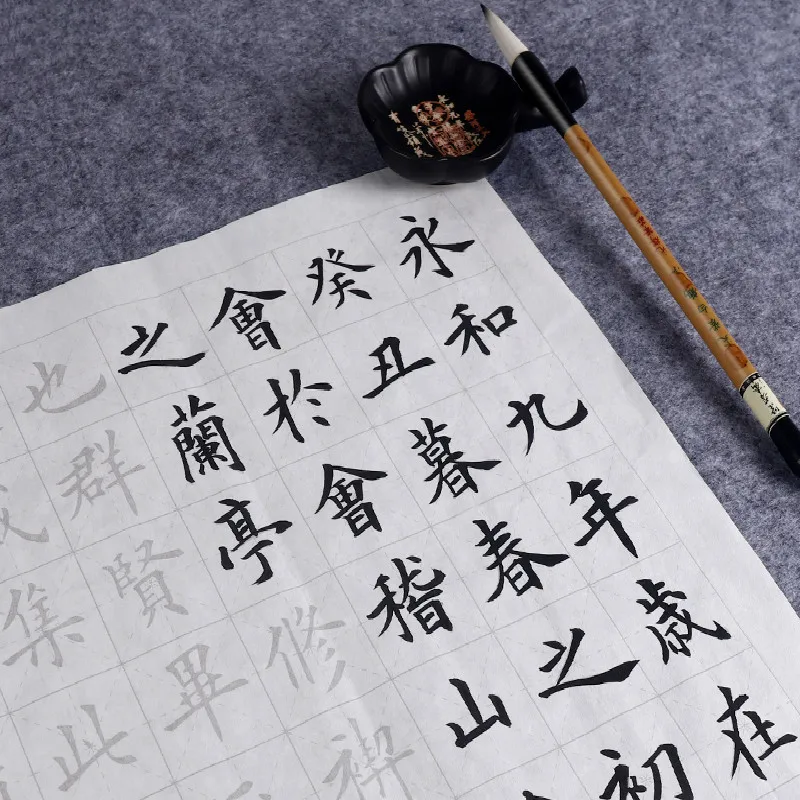 永和九年歲在
癸丑暮春之初
會於會稽山
之蘭亭修禊
也群賢畢
集此